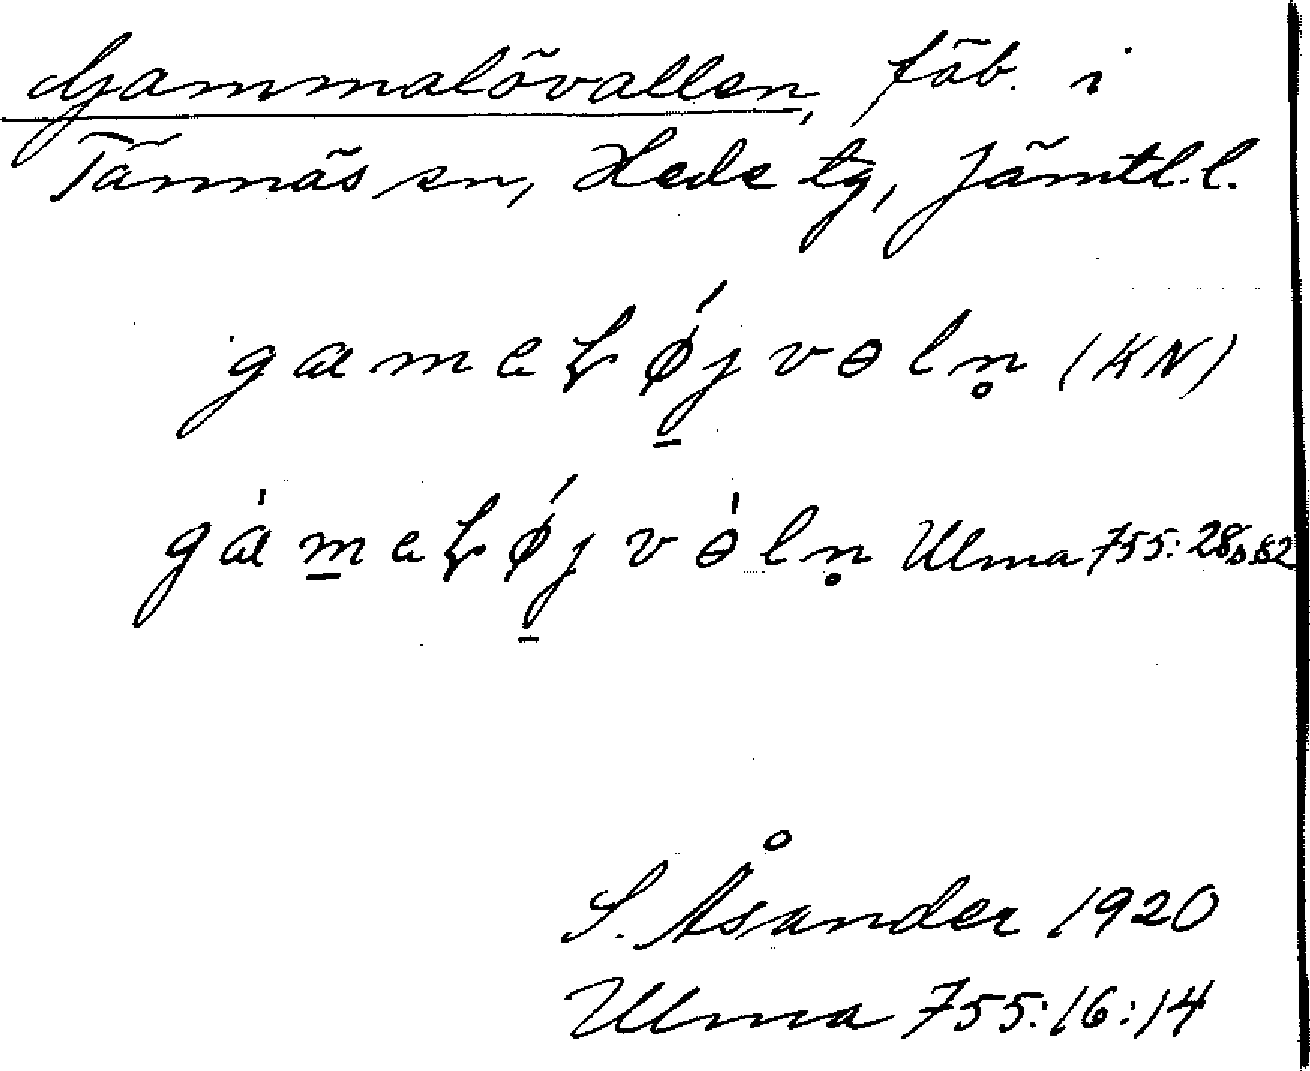 Gammalövallen, fäb. i
Tännäs sn, Hede tg, Jämtl.l.
gameɫǿjvɵln̥ (KN)
gámeɫǿjvɵ́ln̥ Ulma 755:
S. Åsander 1920
Ulma 755:16:14